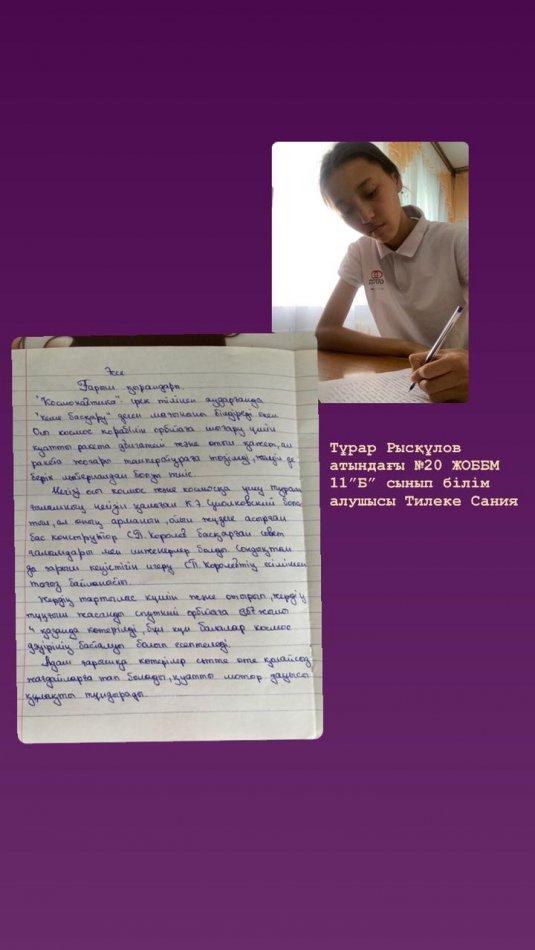 Эссе
Ғарыш қырандары.
"Космонавтика" грек тілінен аударғанда
"кеме басқару" деген мағынаны білдіреді екен.
Осы космос корабілін орбитаға шығару үшін
қуатты ракета двигателі және отын қажет, ал
ракета жоғары температураға төзімді, жеңіл де
берік материалдан болуы тиіс.
Негізі осы космос және космосқа ұшу туралы
ғылымның негізін қалаған К.Э Циолковский
тын, ал оның арманын, ойын жүзеге асырған
бас конструктор С.П. Королев басқарған совет
ғалымдары мен инженерлер болды. Сондықтан
да ғарыш кеңістігін игеру С.П. Королевтің есімімен
тығыз байланысты.
Жердің тартылыс күшін жеңе отырып, жердің
тұңғыш жасанды спутнигі орбитаға 1957 жылы
4 қазанда көтерілді, бұл күн балалар космос
дәуірінің басталуы болып есептеледі.
Адам ғарышқа көтерілер сәтте өте қолайсыз
жағдайларға тап болады, қуатты мотор дауысы
құлақты тұндырады.
Тұрар Рысқұлов
атындағы №20 ЖОББМ
11"Б" сынып білім
алушысы Тилеке Сания